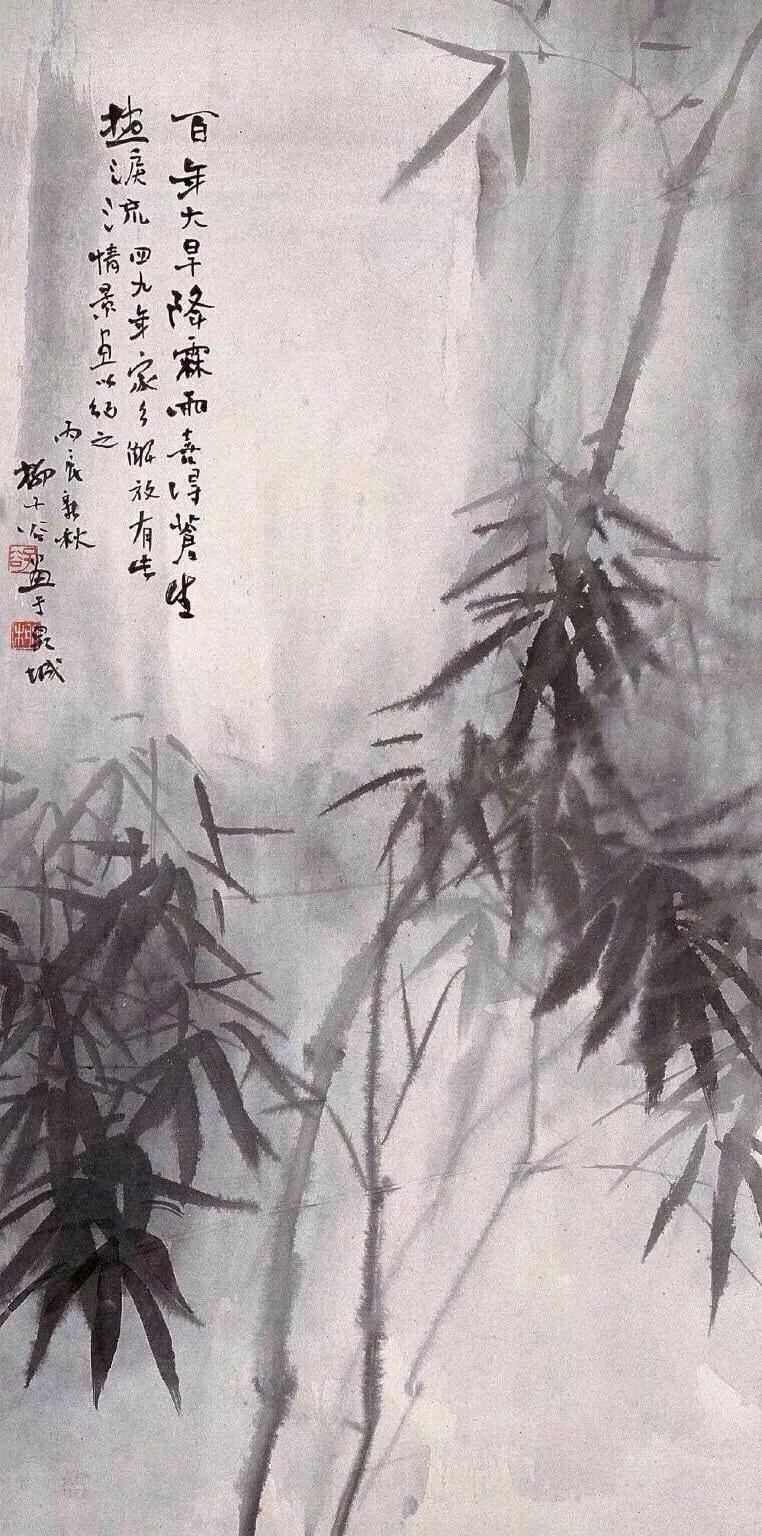 百年大旱降霖雨喜得蒼生
热淚流四九年家乡解放有此
情景画以纪之
丙辰新秋
柳子谷画于泉城